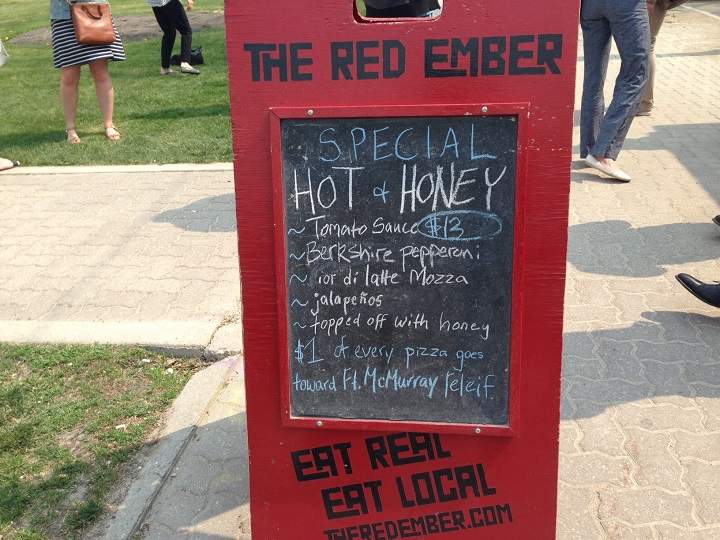 THE RED EMBER
SPECIAL
HOT & HONEY
~ Tomato Sauce $13
~ Berkshire pepperoni
~ ior di latte Mozza
~ jalapeños
~ topped off with honey
$1 of every pizza goes
toward Ft. McMurray releif.
EAT REAL
EAT LOCAL
THEREDEMBER.COM